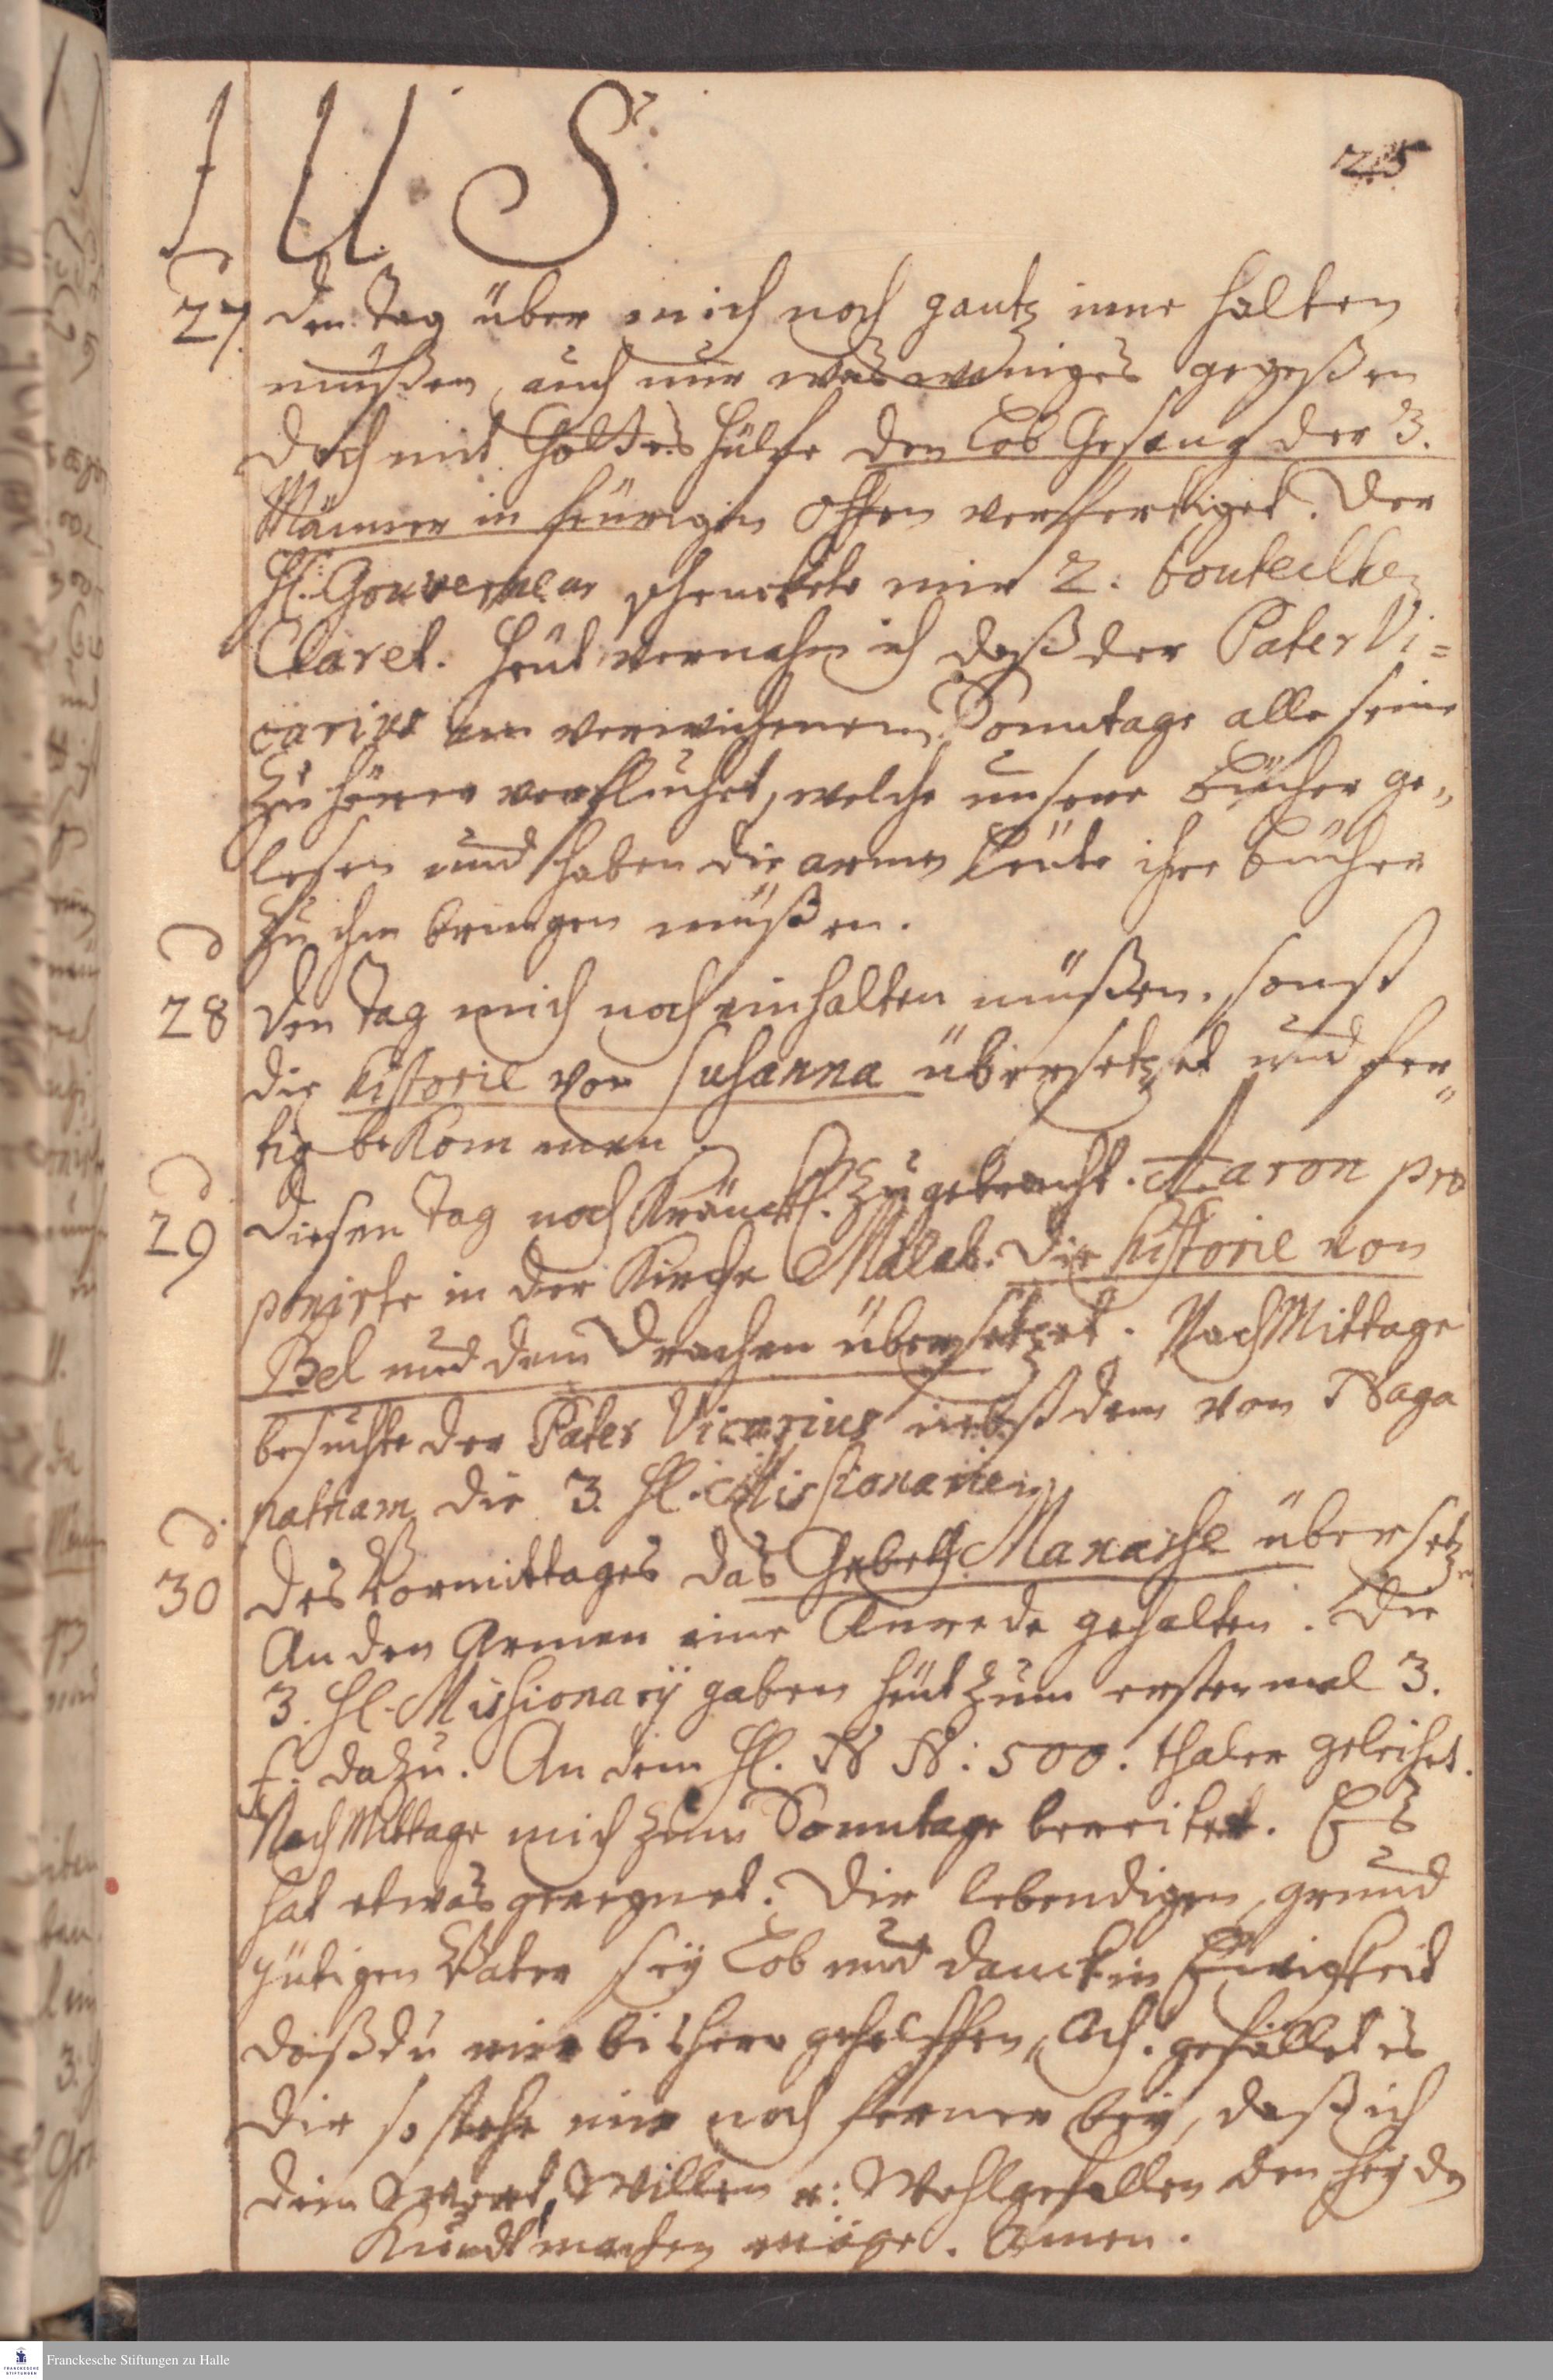 I U S
25
d 27. den Tag über mich noch gantz inne halten
müßen, auch nur was weniges gegeßen
doch mit Gottes Hülfe den Lob Gesang der 3.
Männer in feurigen Offen verfertiget. Der
H. Gouverneur schenckete mir 2. bouteillen
Claret. Heut vernahm ich daß der Pater Vi=
carius am verwichenem Sonntage alle seine
Zuhörer verfluchet, welche unsere Bücher ge„
lesen und haben die armen Leute ihre Bücher
zu ihm bringen müßen.
d 28 Den Tag mich noch einhalten müßen. sonst
die historie von Susanna übersetzet und fer„
tig bekommen
d 29 Diesen Tag noch Kräncklich zugebracht. Aaron pro
ponirte in der Kirche Malab. die historie von
Bel und dem Drachen übersetzet. Nach Mittage
besuchte der Pater Vicarius nebst dem von Naga
patnam die 3. H. Missionarien
d. 30 des Vormittages das Gebeth Manasse übersetzet
An den Armen eine Anrede gehalten. Die
3. H. Missionarij gaben heut zum ersten mal 3.
f. dazu. An dem H. N N: 500. thaler geleihet.
Nach Mittage mich zum Sonntage bereitet. Es
hat etwas geregnet. Dir lebendigen, grund
gütigen Vater sey Lob und danck in Ewigkeit
daß du mir bishero geholffen, Ach. gefället es
dir so stehe mir noch ferner bey, daß ich
dein Wort, Willen u: Wohlgefallen den Heyden
Kundt machen möge. Amen.
Franckesche Stiftungen zu Halle